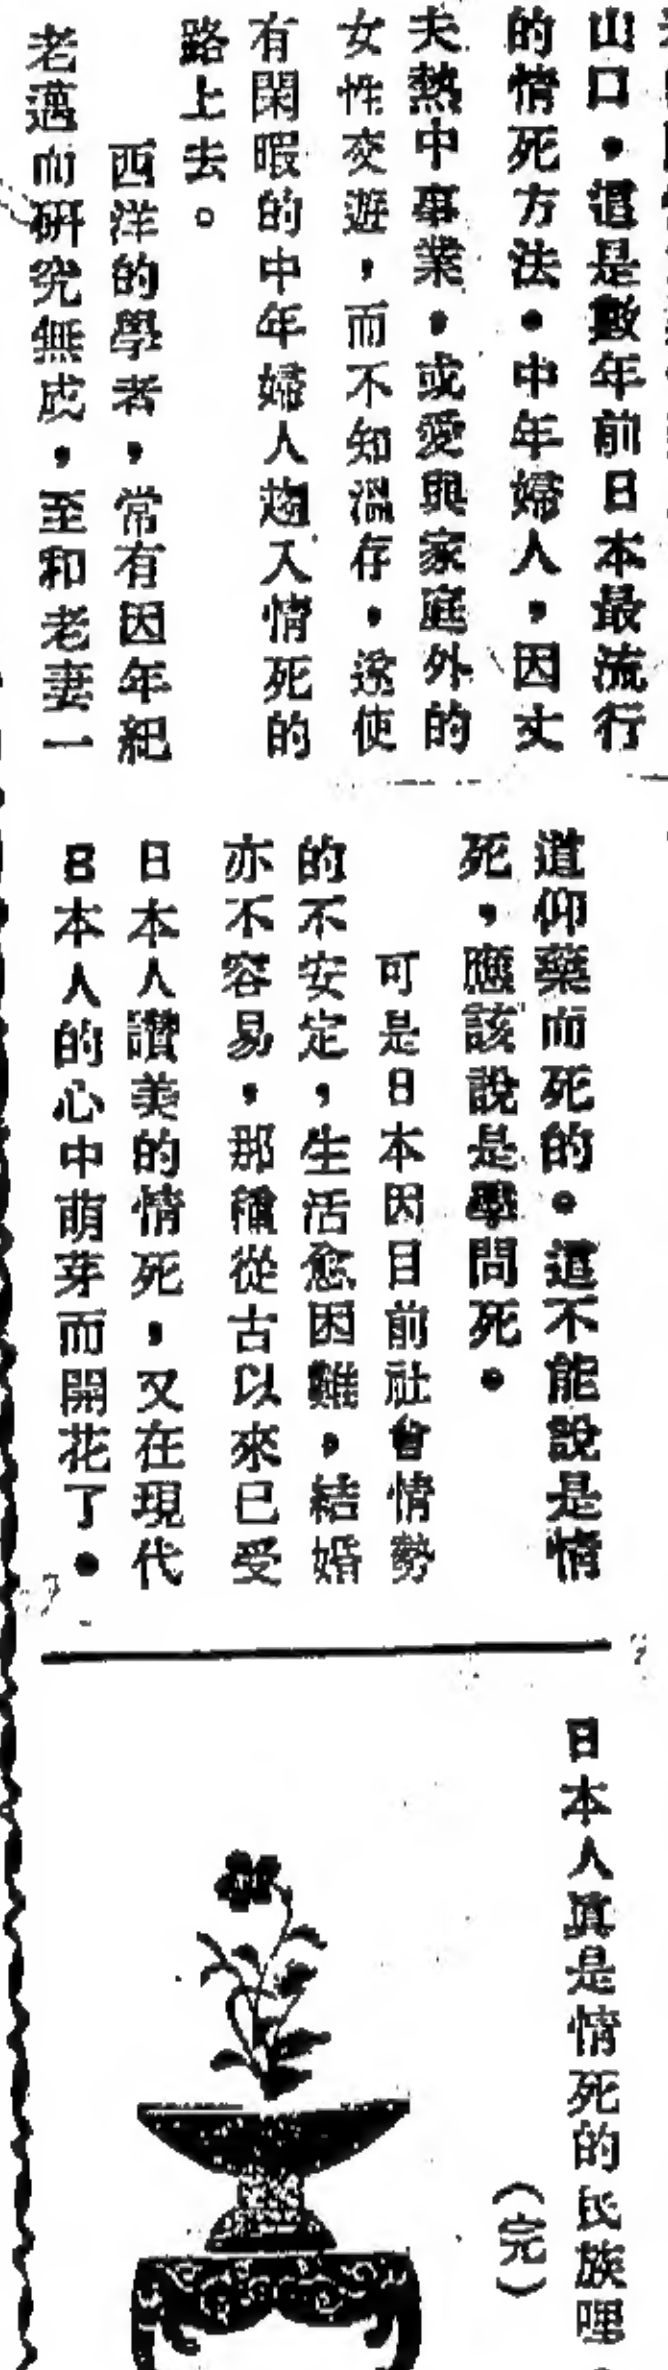 山口，這是數年前日本最流行
的情死方法。中年婦人，因丈
夫熱中事業，或愛與家庭外的
女性交遊，而不知溫存，遂使
有閑暇的中年婦人趨入情死的
路上去。
西洋的學者，常有因年紀
老邁而研究無成，至和老妻一
道仰藥而死的。這不能說是情
死，應該說是學問死。
可是日本因目前社會情勢
的不安定，生活愈困難，結婚
亦不容易，那種從古以來已受
日本人讚美的情死，又在現代
日本人的心中萌芽而開花了。
日本人眞是情死的民族哩。
（完）